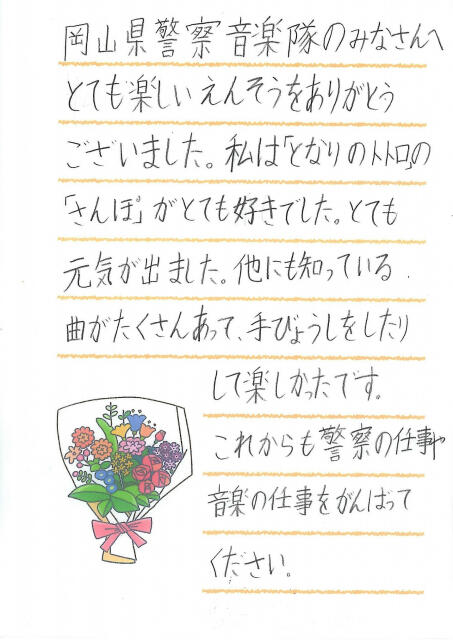 岡山県警察音楽隊のみなさんへ
とても楽しいえんそうをありがとう
ございました。私は「となりのトトロ」の
「さんぽ」がとても好きでした。とても
元気が出ました。他にも知っている
曲がたくさんあって、手びょうしをしたり
して楽しかったです。
これからも警察の仕事や
音楽の仕事をがんばって
ください。